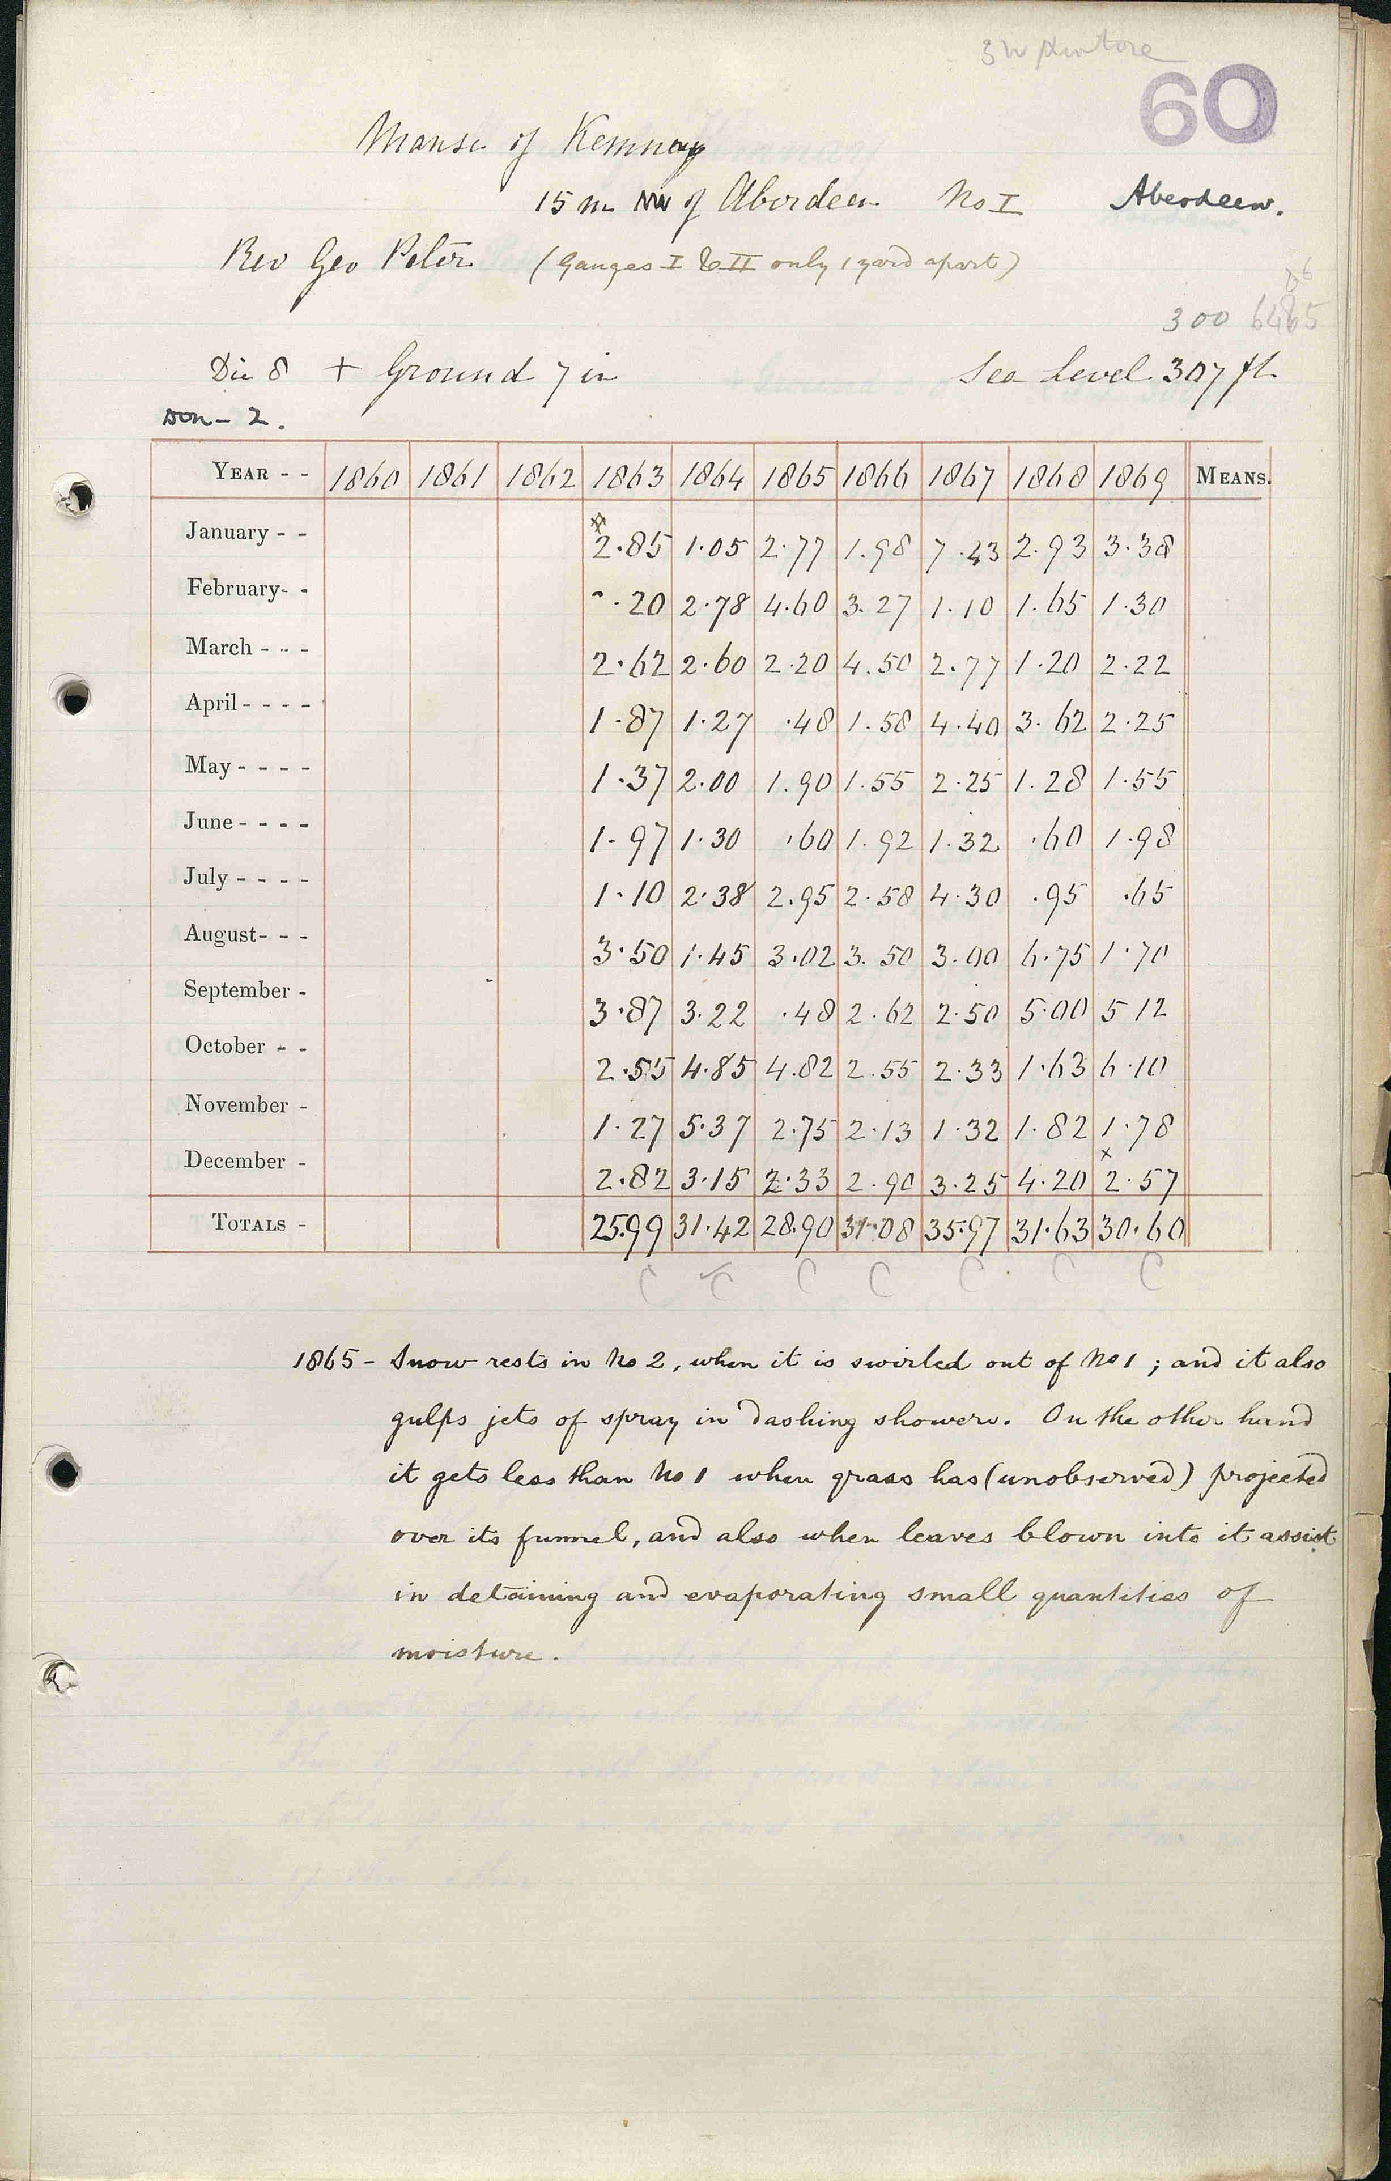 60
Manse of Kemnay
15 m NW of Aberdeen No I Aberdeen.
Rev Geo Peter (Gauges I & II only 1 yard apart)
300
Dia 8 + Ground 7 in Sea Level 307 ft
Don - 2.
YEAR - - 1860 1861 1862 1863 1864 1865 1866 1867 1868 1869 MEANS.
January - - 2.85 1.05 2.77 1.98 7.43 2.93 3.38
February- - .20 2.78 4.60 3.27 1.10 1.65 1.30
March - - - 2.62 2.60 2.20 4.50 2.77 1.20 2.22
April - - - - 1.87 1.27 .48 1.58 4.40 3.62 2.25
May - - - - 1.37 2.00 1.90 1.55 2.25 1.28 1.55
June - - - - 1.97 1.30 .60 1.92 1.32 .60 1.98
July - - - - 1.10 2.38 2.95 2.58 4.30 .95 .65
August- - - 3.50 1.45 3.02 3.50 3.00 6.75 1.70
September - 3.87 3.22 .48 2.62 2.50 5.00 5 12
October - - 2.55 4.85 4.82 2.55 2.33 1.63 6.10
November - 1.27 5.37 2.75 2.13 1.32 1.82 1.78
December - 2.82 3.15 2.33 2.90 3.25 4.20 2.57
TOTALS - 25.99 31.42 28.90 31.08 35.97 31.63 30.60
C C C C C C C
1865 - Snow rests in No 2, when it is swirled out of No 1 ; and it also
gulps jets of spray in dashing showers. On the other hand
it gets less than No 1 when grass has (unobserved) projected
over its funnel, and also when leaves blown into it assist
in detaining and evaporating small quantities of
moisture.